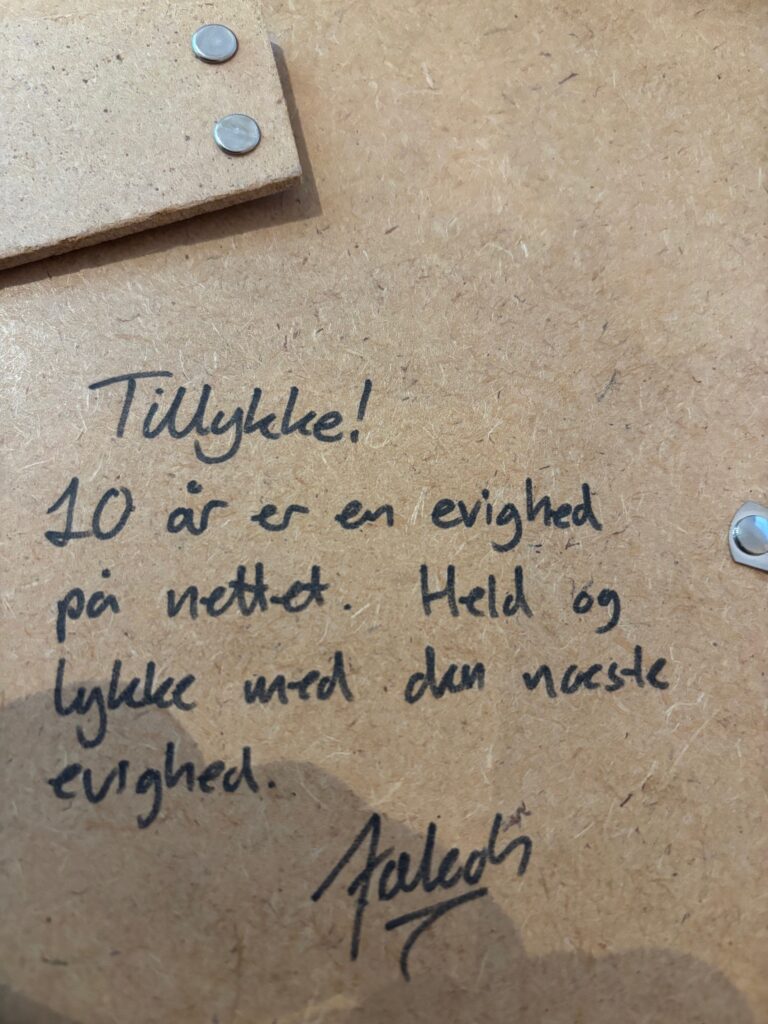 Tillykke!
10 år er en evighed
på nettet. Held og
lykke med den næste
evighed.